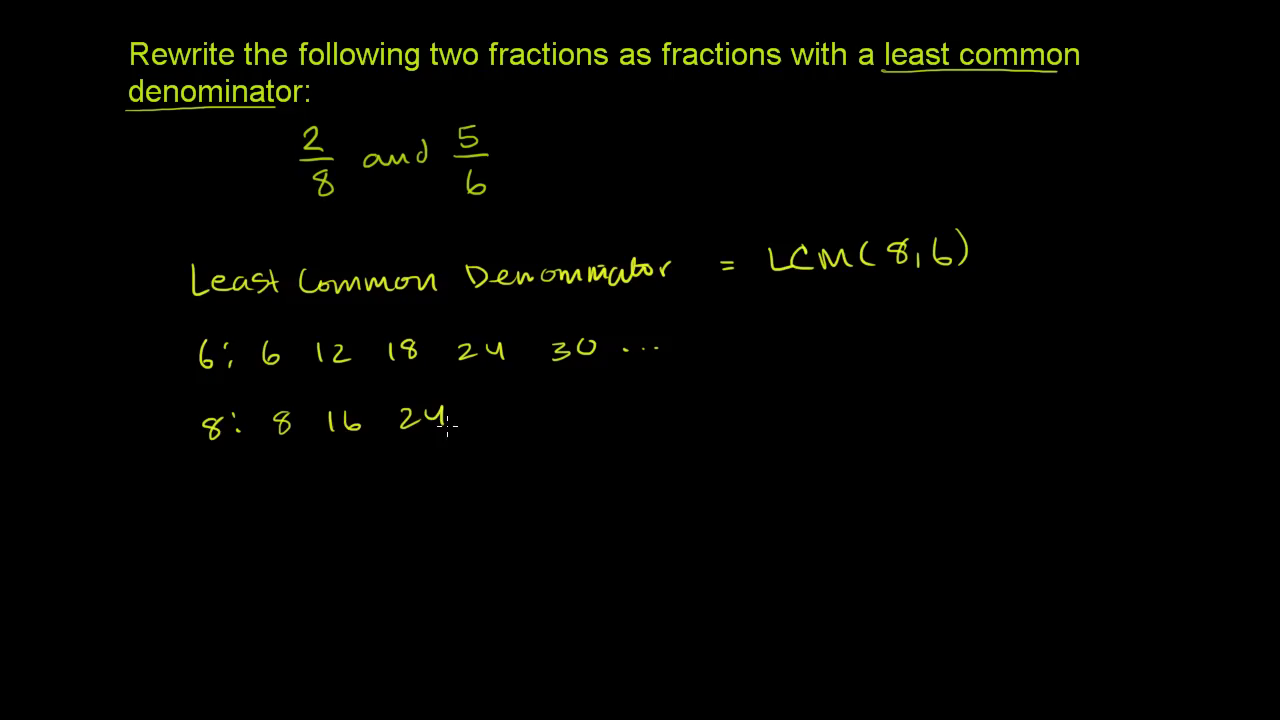 Rewrite the following two fractions as fractions with a least common
denominator:
2/8 and 5/6
Least Common Denominator = LCM(8,6)
6: 6 12 18 24 30 ...
8: 8 16 24